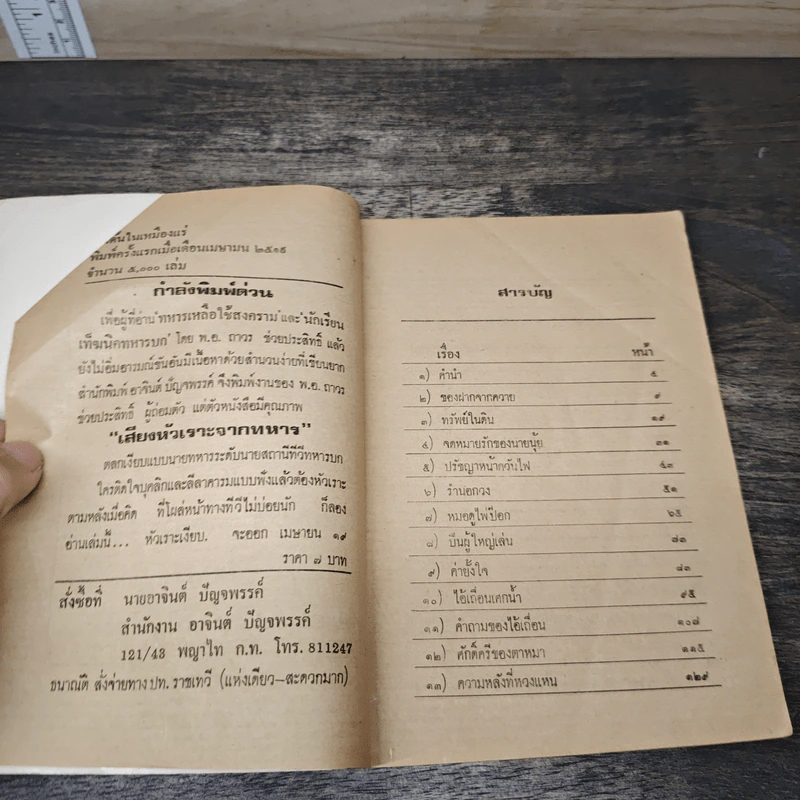 ตื่นในเหมืองแร่
พิมพ์ครั้งแรกเมื่อเดือนเมษายน ๒๕๑๙
จำนวน ๕,๐๐๐ เล่ม
กำลังพิมพ์ด่วน
เพื่อผู้ที่อ่าน 'ทหารเหลือใช้สงคราม' และ 'นักเรียน
เท็ฆนิคทหารบก' โดย พ.อ. ถาวร ช่วยประสิทธิ์ แล้ว
ยังไม่อิ่มอารมณ์ขันอันมีเนื้อหาด้วยสำนวนง่ายที่เขียนยาก
สำนักพิมพ์ อาจินต์ ปัญจพรรค์ จึงพิมพ์งานของ พ.อ. ถาวร
ช่วยประสิทธิ์ ผู้ถ่อมตัว แต่ตัวหนังสือมีคุณภาพ
"เสียงหัวเราะจากทหาร"
ตลกเงียบแบบนายทหารระดับนายสถานีทีวีทหารบก
ใครติดใจบุคลิกและลีลาคารมแบบฟังแล้วต้องหัวเราะ
ตามหลังเมื่อคิด ที่โผล่หน้าทางทีวีไม่บ่อยนัก ก็ลอง
อ่านเล่มนี้... หัวเราะเงียบ. จะออก เมษายน ๑๙
ราคา ๗ บาท
สั่งซื้อที่ นายอาจินต์ ปัญจพรรค์
สำนักงาน อาจินต์ ปัญจพรรค์
121/43 พญาไท ก.ท. โทร. 811247
ธนาณัติ สั่งจ่ายทาง ปท. ราชเทวี (แห่งเดียว-สะดวกมาก)
สารบัญ
เรื่อง หน้า
๑) คำนำ ๕
๒) ของฝากจากควาย ๙
๓) ทรัพย์ในดิน ๑๙
๔) จดหมายรักของนายนุ้ย ๓๑
๕) ปรัชญาหน้ากวันไฟ ๔๓
๖) รำนอกวง ๕๑
๗) หมอดูไพ่ป๊อก ๖๕
๘) ปืนผู้ใหญ่เล่น ๗๓
๙) ค่ายั้งใจ ๘๓
๑๐) ไอ้เถื่อนเตกน้ำ ๙๕
๑๑) คำถามของไอ้เถื่อน ๑๐๗
๑๒) ศักดิ์ศรีของตาหมา ๑๑๕
๑๓) ความหลังที่หวงแหน ๑๒๙